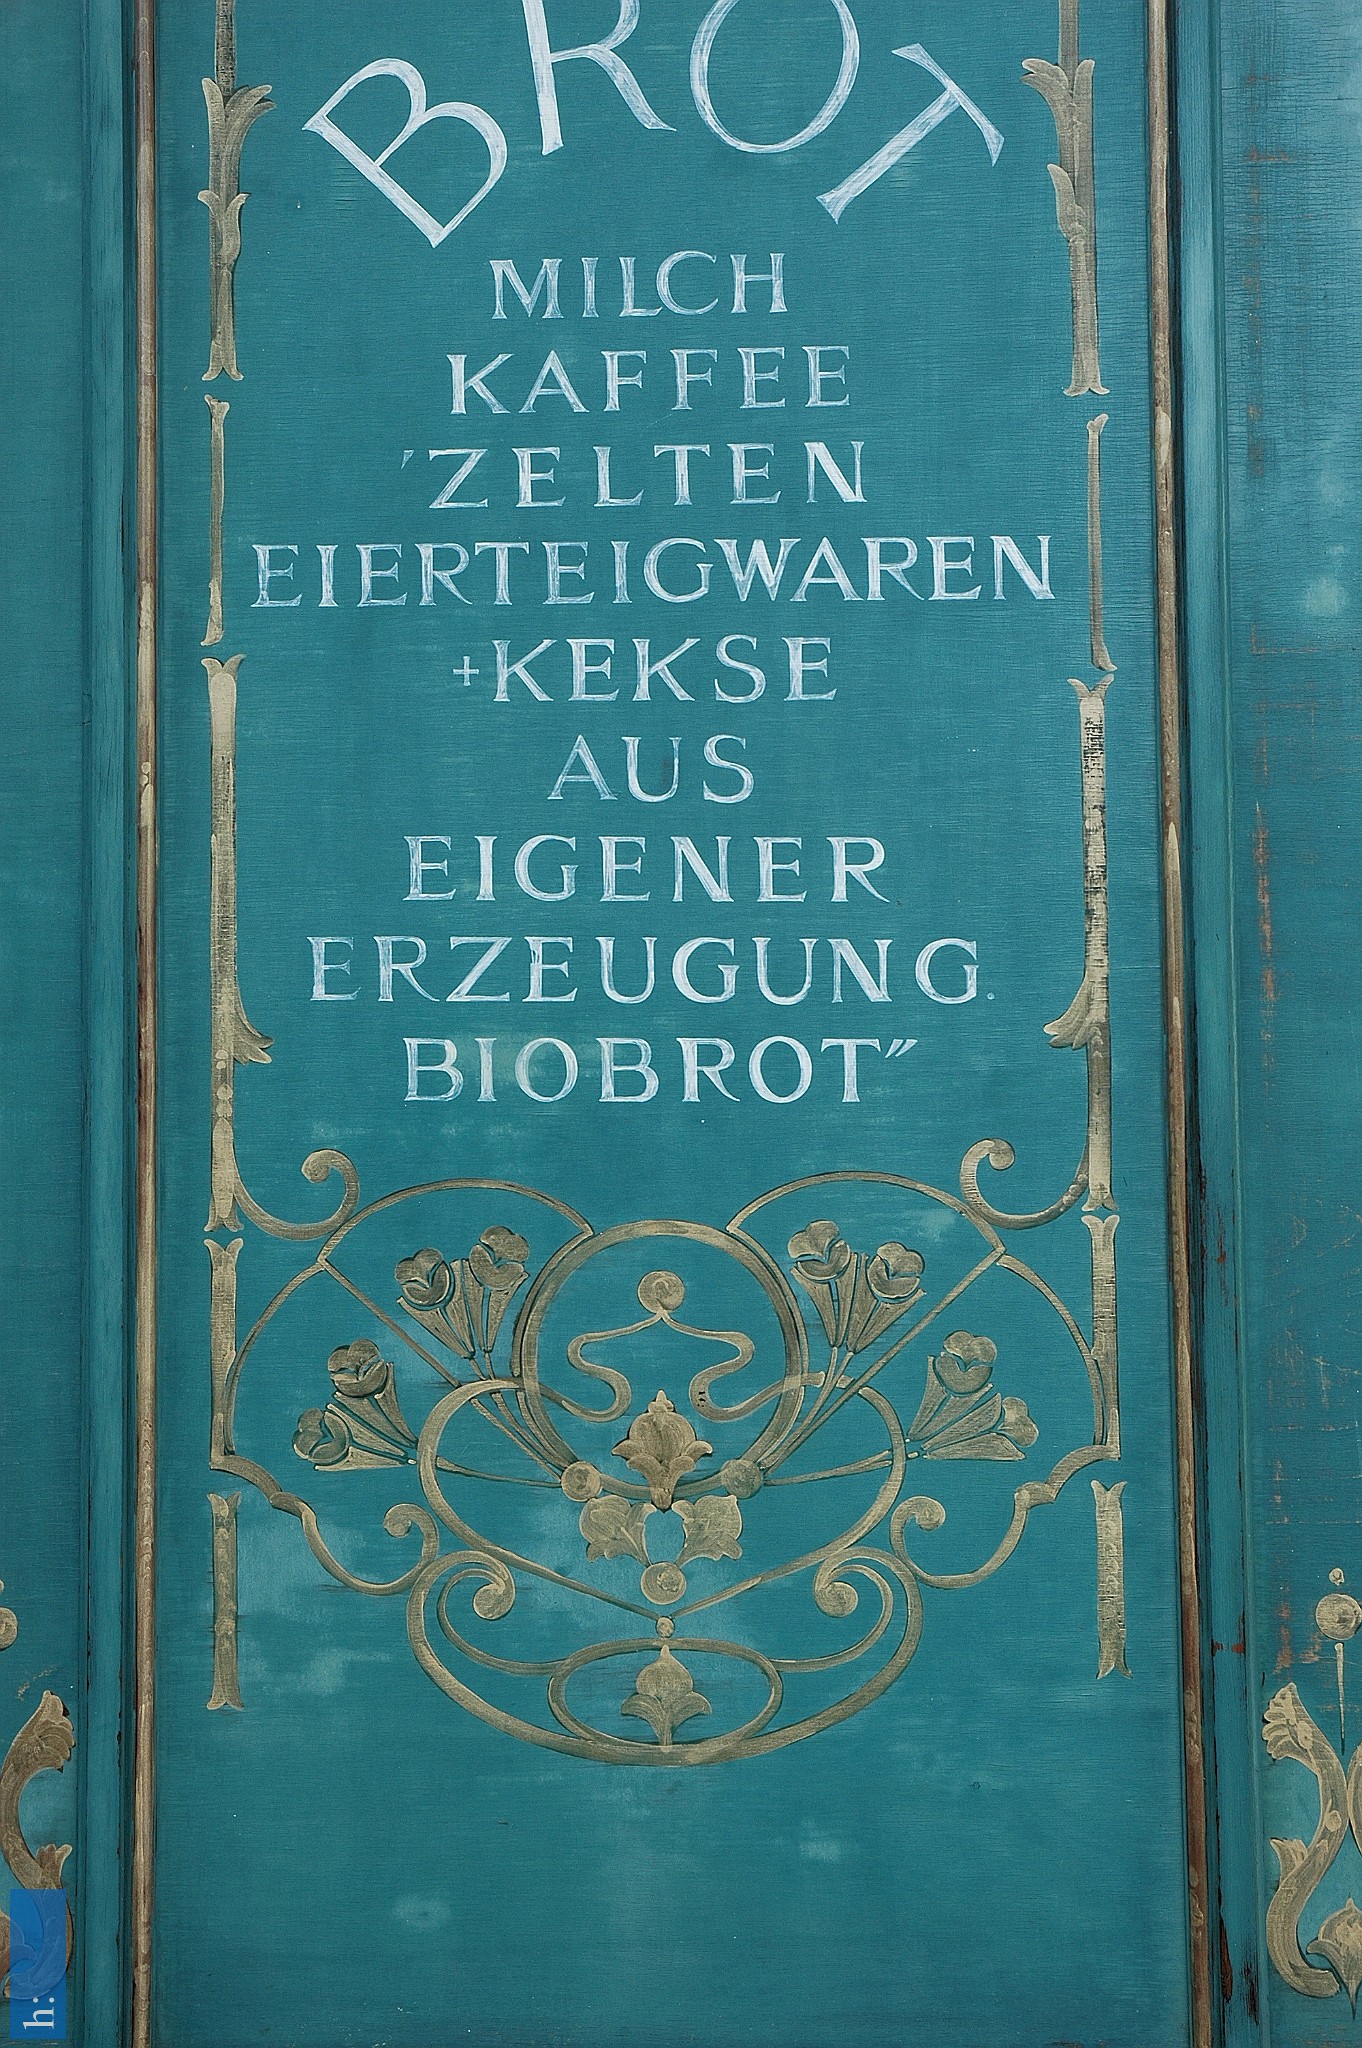 BROT
MILCH
KAFFEE
'ZELTEN
EIERTEIGWAREN
+KEKSE
AUS
EIGENER
ERZEUGUNG.
BIOBROT"
h: